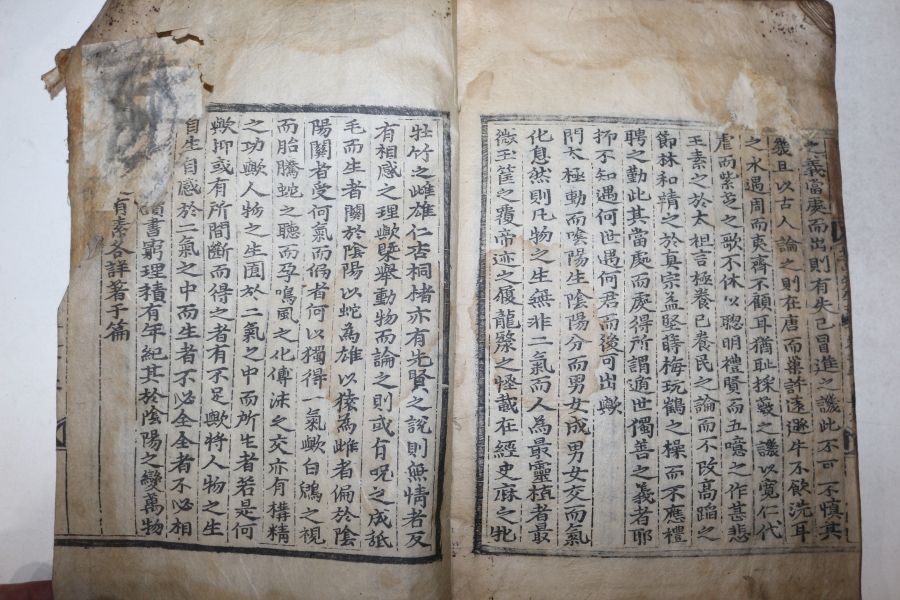 之義當處而出則有失己冒進之譏此不可不慎其
幾且以古人論之則在唐而巢許遠遯牛不飲洗耳
之水遇周而夷齊不顧耳猶耻採薇之譏以寬仁代
虐而紫芝之歌不休以聰明禮賢而五噫之作甚悲
王素之於太祖言極養己養民之論而不改高蹈之
節林和靖之於真宗孟堅薛梅玩鶴之操而不應禮
聘之勤此其當處而處得所謂適世獨善之義者耶
抑不知遇何世遇何君而後可出歟
門太極動而陰陽生陰陽分而男女成男女交而氣
化息然則凡物之生無非二氣而人為最靈植者最
微玉筐之覆帝迹之履龍漦之怪載在經史麻之牝
牡竹之雌雄仁杏桐楮亦有先賢之說則無情者反
有相感之理歟槩舉動物而論之則或有呪之成舐
毛而生者關於陰陽以蛇為雄以猿為雌者偏於陰
陽關者受何氣而偶者何以獨得一氣歟白鷁之視
而胎騰蛇之聽而孕鳴風之化傳沫之交亦有構精
之功歟人物之生囿於二氣之中而所生者若是何
歟抑或有所間斷而得之者有不足歟將人物之生
自生自感於二氣之中而生者不必全全者不必相
讀書窮理積有年紀其於陰陽之變萬物
有素各詳著于篇